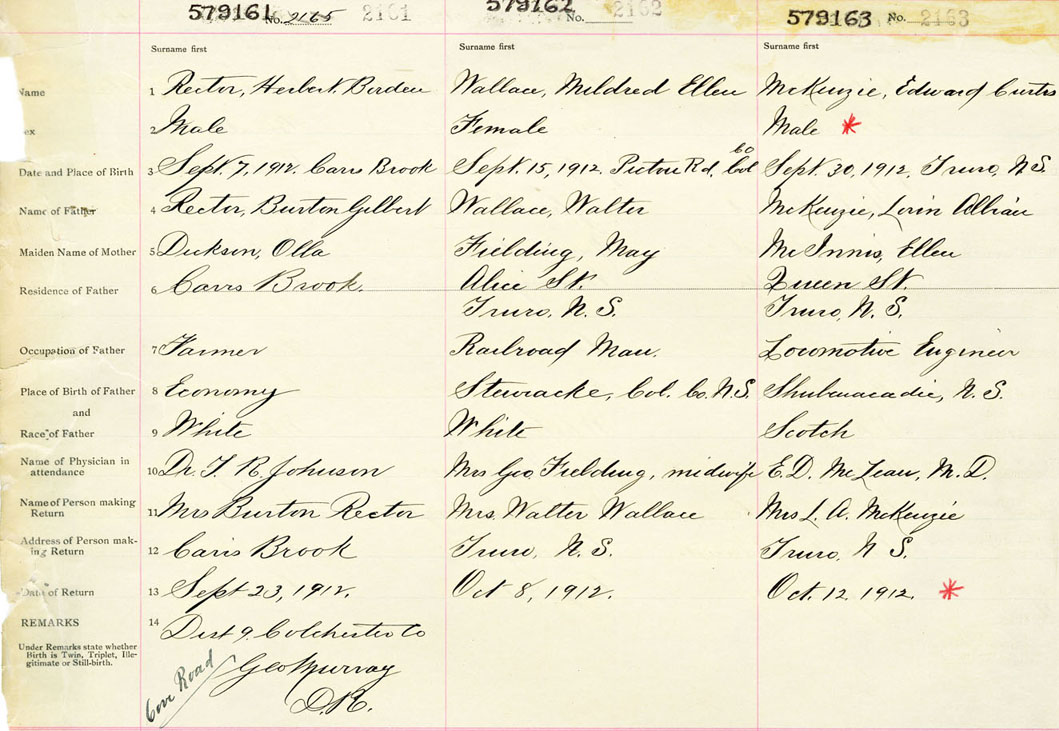 579161 No. 2165 2161 579162 No. 2162 579163 No. 2163
Surname first Surname first Surname first
Name 1 Rector, Herbert Borden Wallace, Mildred Ellen McKenzie, Edward Curtis
ex 2 Male Female Male *
Co
Date and Place of Birth 3 Sept. 7, 1912, Carrs Brook Sept. 15, 1912, Pictou Rd, Col Sept. 30, 1912, Truro, N S.
Name of Father 4 Rector, Burton Gilbert Wallace, Walter McKenzie, Lorin
Maiden Name of Mother 5 Dickson, Olla Fielding, May McInnis, Ellen
Residence of Father 6 Carrs Brook. Alice St. Queen St.
Truro, N. S. Truro, N. S.
Occupation of Father 7 Farmer Railroad Man. Locomotive Engineer
Place of Birth of Father 8 Economy Stewiacke, Col. Co. N. S. Shubenacadie, N. S.
and
Race of Father 9 White White Scotch
Name of Physician in
attendance 10 Dr. T. R. Johnson Mrs Geo Fielding, midwife E. D. McLean, M. D.
Name of Person making
Return 11 Mrs Burton Rector Mrs. Walter Wallace Mrs L. A. McKenzie
Address of Person mak-
ing Return 12 Carrs Brook Truro, N. S. Truro, N S.
Date of Return 13 Sept 23, 1912. Oct 8, 1912. Oct. 12 1912. *
REMARKS 14 Dist 9. Colchester Co
Under Remarks state whether
Birth is Twin, Triplet, Ille-
gitimate or Still-birth.
Geo Murray
D.R.
Road